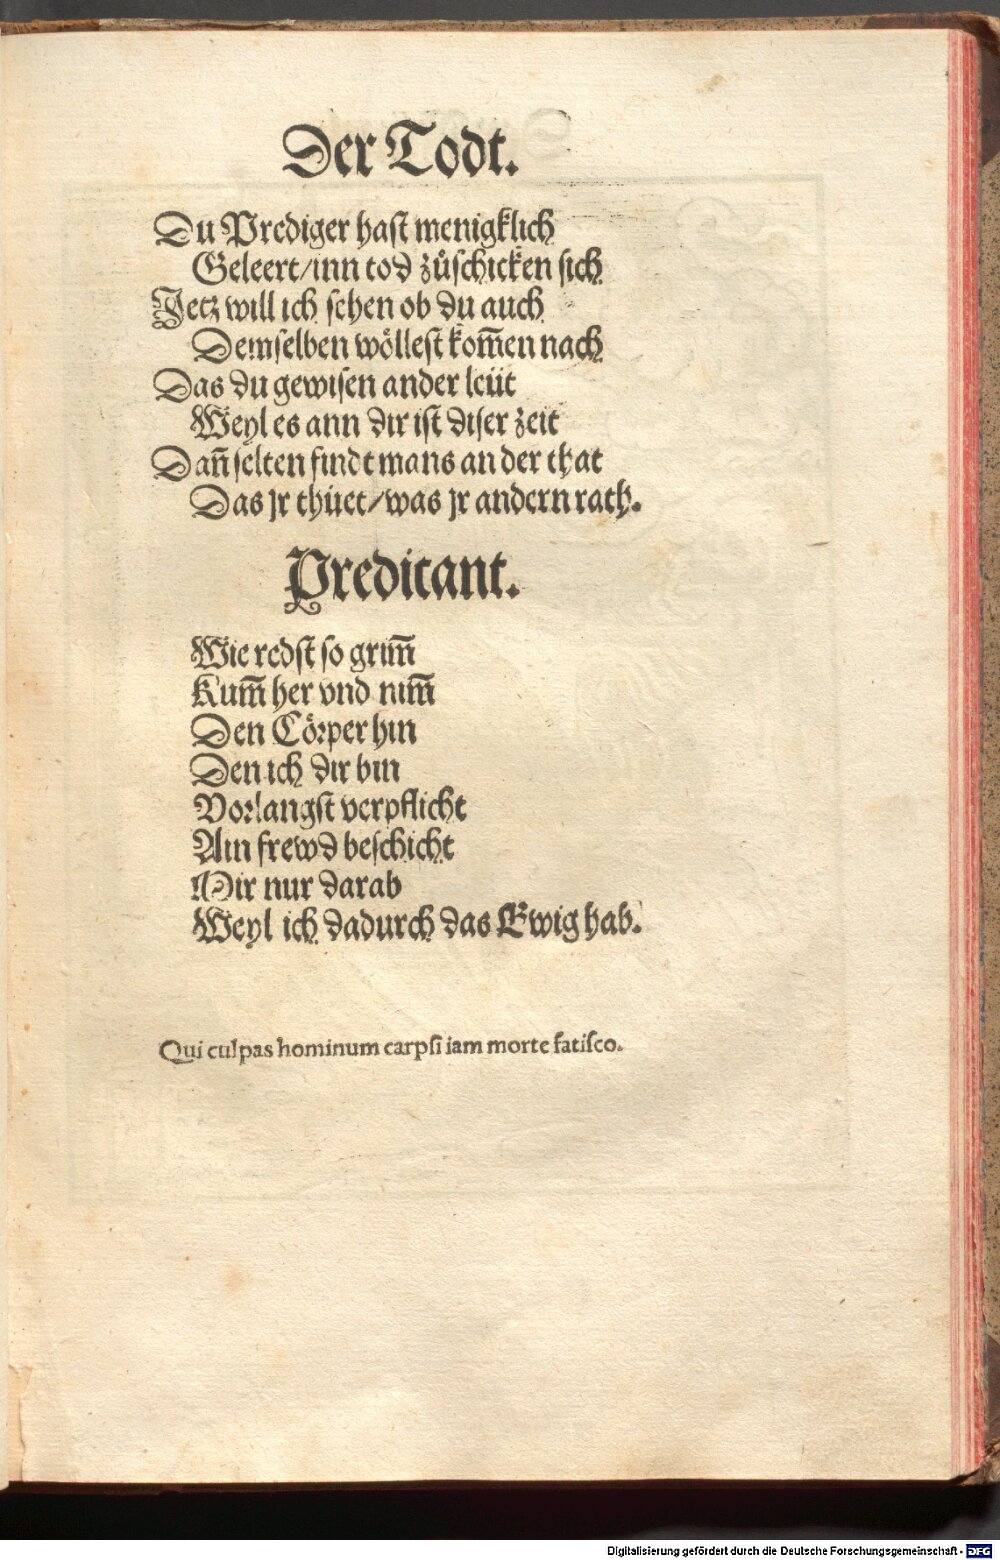 Der Todt.
Du Prediger hast menigklich
Geleert/inn tod zůschicken sich
Jetz will ich sehen ob du auch
Demselben wöllest kom̄en nach
Das du gewisen ander leüt
Weyl es ann dir ist diser zeit
Dañ selten findt mans an der that
Das jr thüet/was jr andern rath.
Predicant.
Wie redst so grim̄
Kum̄ her vnd nim̄
Den Cörper hin
Den ich dir bin
Vorlangst verpflicht
Ain frewd beschicht
Mir nur darab
Weyl ich dadurch das Ewig hab.
Qui culpas hominum carpsi iam morte fatisco.
Digitalisierung gefördert durch die Deutsche Forschungsgemeinschaft - DFG